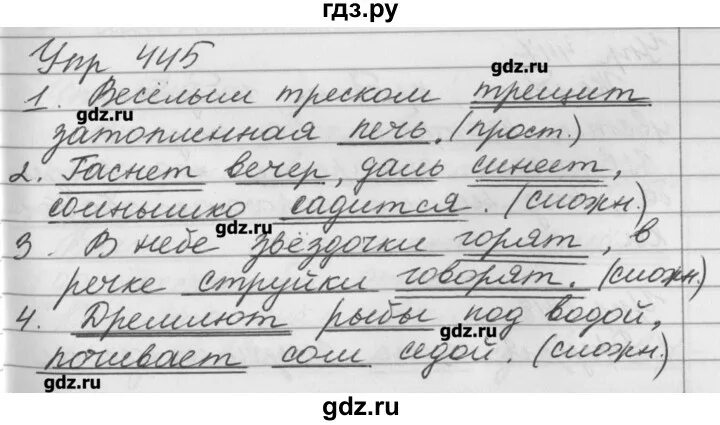 гдз.ру
Упр 445
gdz.ru
1. Весёлым треском трещит
затопленная печь. (прост.)
gdz.ru
2. Гаснет вечер, даль синеет,
gdz.ru
солнышко садится. (сложн.)
gdz.ru
3. В небе звёздочки горят, в
речке струйки говорят. (сложн.)
4. Дремлют рыбы под водой,
gdz.ru
почивает сом седой. (сложн.)
gdz.ru
gdz.ru